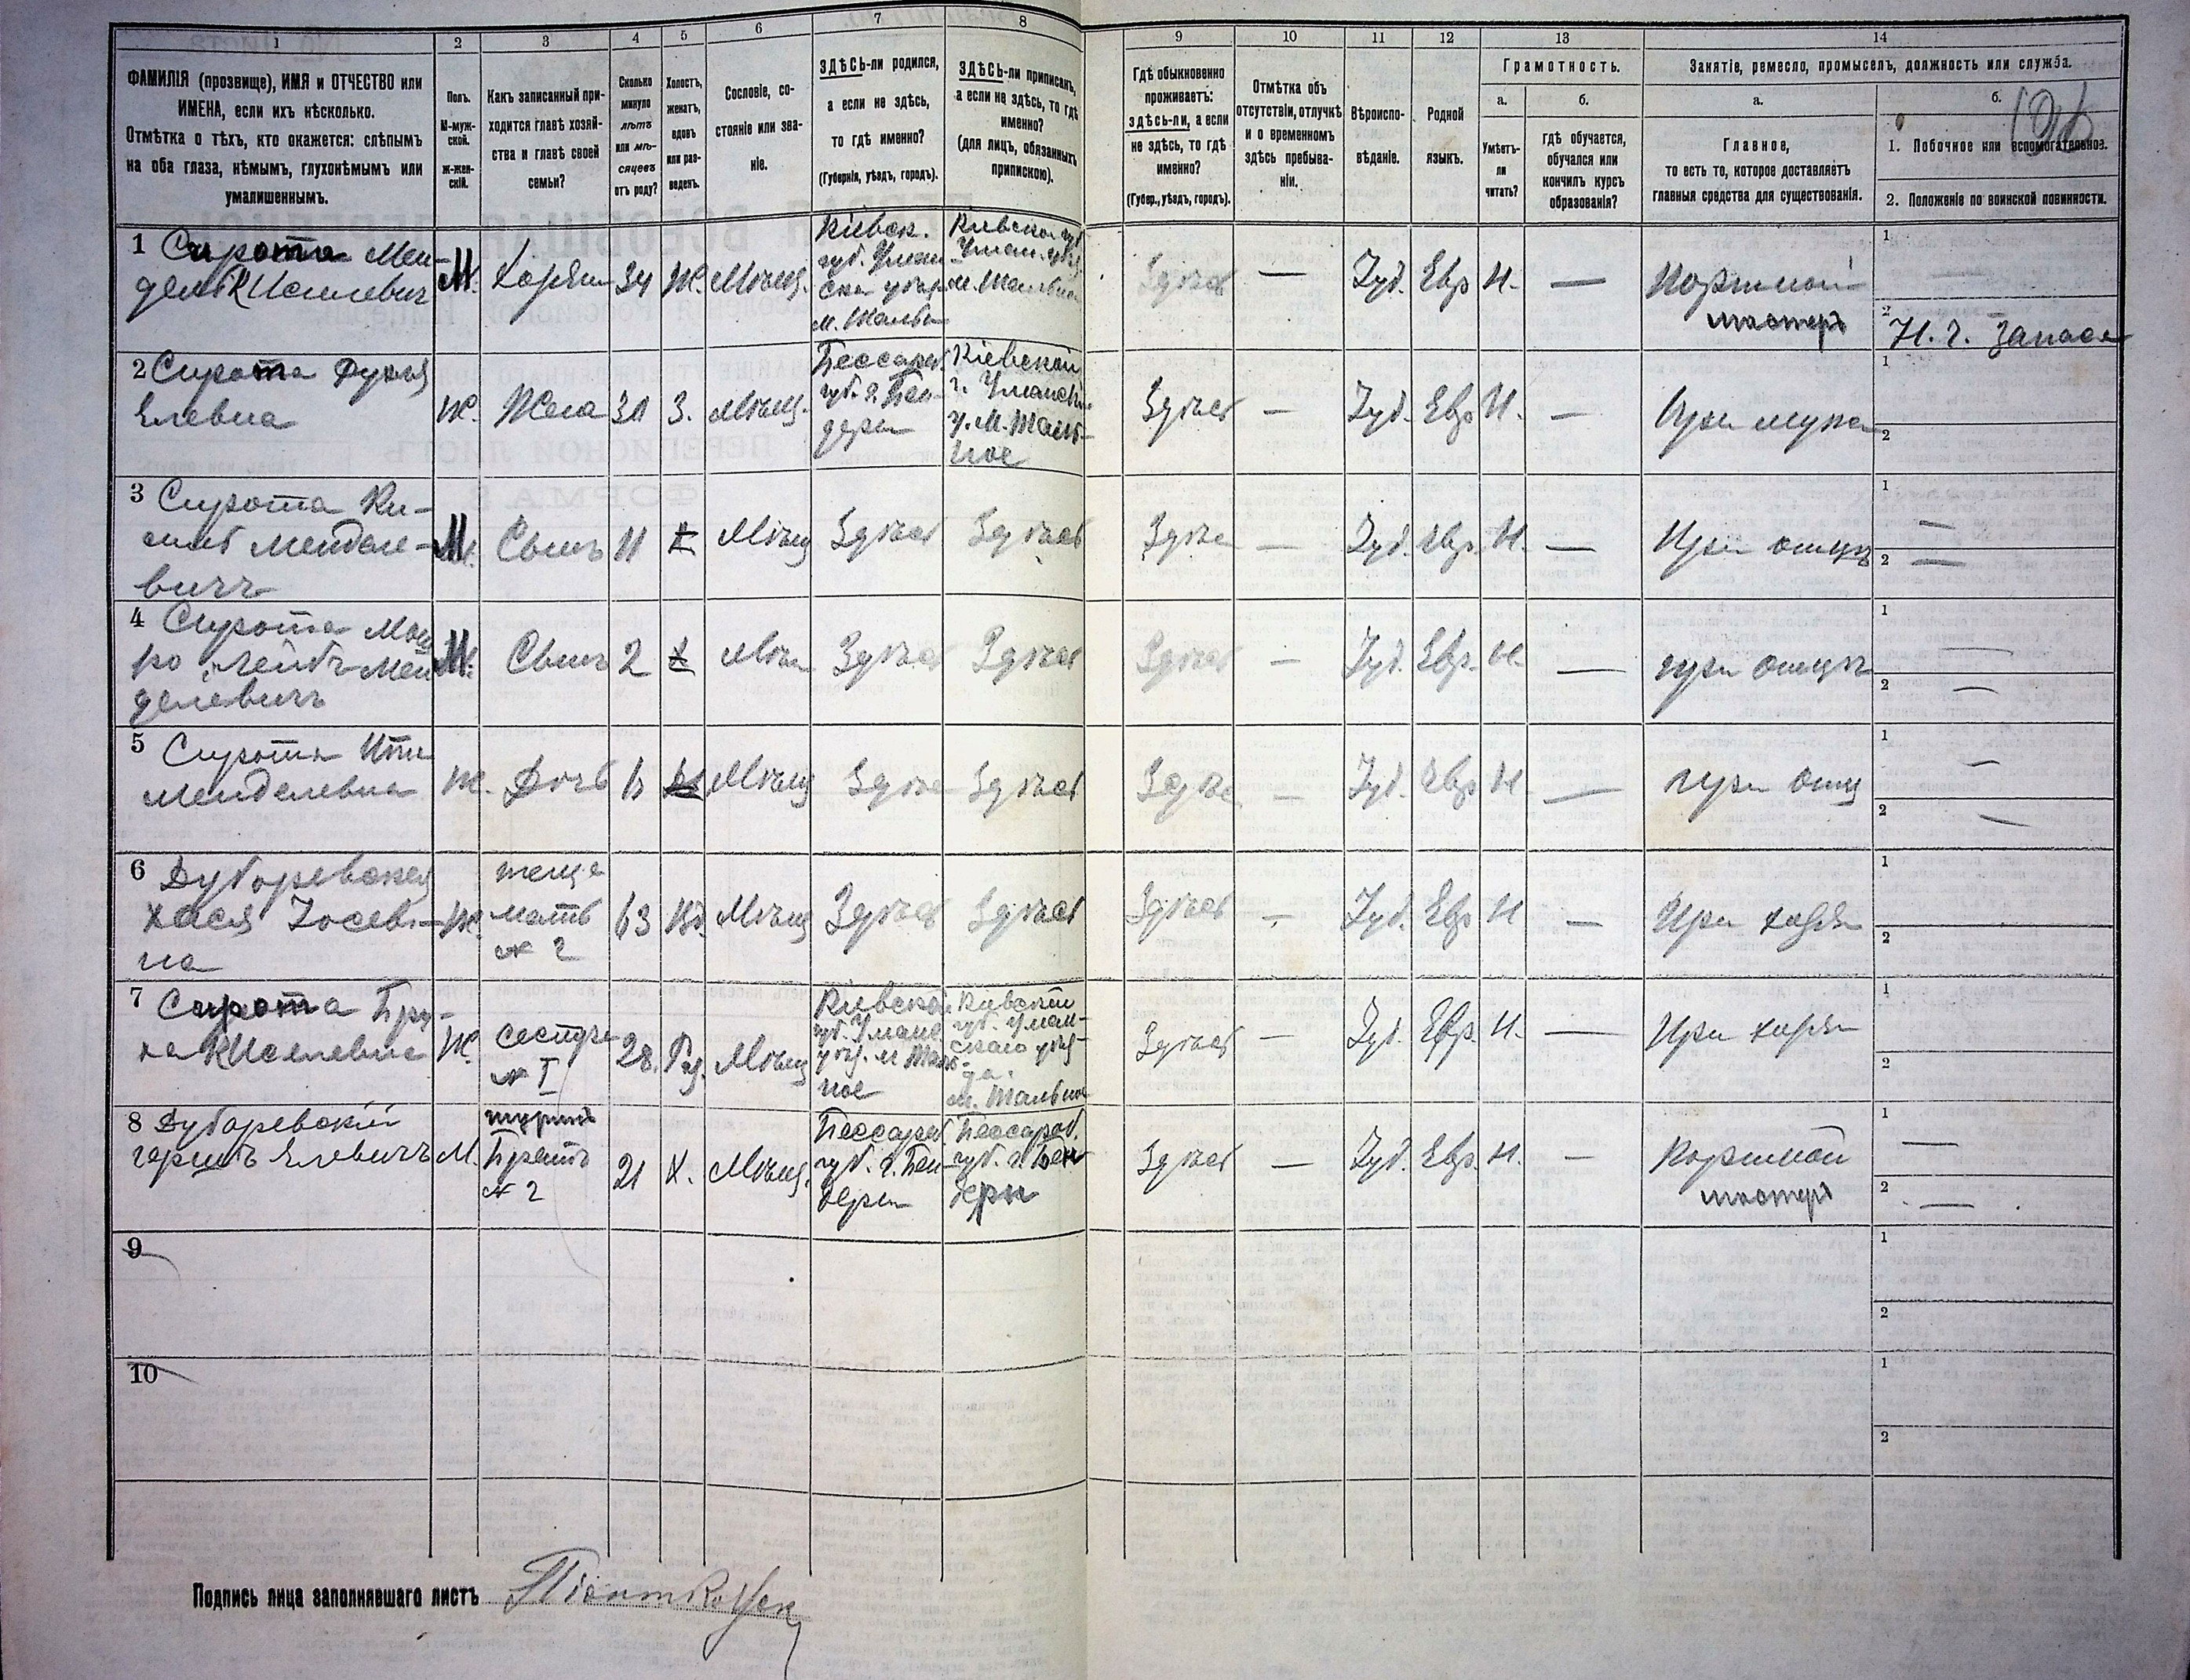 1 2 3 4 5 6 7 8 9 10 11 12 13 14
ФАМИЛІЯ (прозвище), ИМЯ и ОТЧЕСТВО или
ИМЕНА, если ихъ нѣсколько.
Отмѣтка о тѣхъ, кто окажется: слѣпымъ
на оба глаза, нѣмымъ, глухонѣмымъ или
умалишеннымъ.
Полъ.
М-муж-
ской.
ж-жен-
скій.
Какъ записанный при-
ходится главѣ хозяй-
ства и главѣ своей
семьи?
Сколько
минуло
лѣтъ
или мѣ-
сяцевъ
отъ роду?
Холостъ,
женатъ,
вдовъ
или раз-
веденъ.
Сословіе, со-
стояніе или зва-
ніе.
ЗДѢСЬ-ли родился,
а если не здѣсь,
то гдѣ именно?
(Губернія, уѣздъ, городъ).
ЗДѢСЬ-ли приписанъ,
а если не здѣсь, то гдѣ
именно?
(для лицъ, обязанныхъ
припискою).
Гдѣ обыкновенно
проживаетъ:
здѣсь-ли, а если
не здѣсь, то гдѣ
именно?
(Губер., уѣздъ, городъ).
Отмѣтка объ
отсутствіи, отлучкѣ
и о временномъ
здѣсь пребыва-
ніи.
Вѣроиспо-
вѣданіе.
Родной
языкъ.
Грамотность.
а.
Умѣетъ-
ли
читать?
б.
гдѣ обучается,
обучался или
кончилъ курсъ
образованія?
Занятіе, ремесло, промыселъ, должность или служба.
а.
Главное,
то есть то, которое доставляетъ
главныя средства для существованія.
б.
1. Побочное или вспомогательное.
2. Положеніе по воинской повинности.
1 Сирота Мен-
дель Киселевич
М. Хозяин 34 Ж. Мѣщ.
Кіевск.
губ. Уман
ска уѣзд
м. Тальн
Кіевской губ
Уман. уѣзд
м. Тальное
Здѣсь — Іуд. Евр Н. —
Портной
мастеръ
1
2 Н. ч. запаса
2 Сирота Фуня
Елевна
Ж. Жена 30 З. Мѣщ.
Бессараб
губ. г. Бен-
дери
Кіевской
г. Уманск
у. м. Таль-
ное
Здѣсь — Іуд. Евр Н. —
При мужѣ
1
2
3 Сирота Ки-
силь Менделе-
вичъ
М. Сынъ 11 Х Мѣщ Здѣсь Здѣсь Здѣсь — Іуд. Евр. Н. — При отцѣ
1 —
2 —
4 Сирота
Лейбъ Мен
делевичъ
М. Сынъ 2 Х Мѣщ Здѣсь Здѣсь Здѣсь — Іуд. Евр. Н. — при отцѣ
1 —
2 —
5 Сирота Ита
Менделевна
Ж. Дочь 6 Мѣщ Здѣсь Здѣсь Здѣсь — Іуд. Евр Н — при отц
1 —
2 —
6 Дубаревская
Хася Іосев-
на
Ж.
теща
мать
№ 2
63 Вд. Мѣщ Здѣсь Здѣсь Здѣсь — Іуд. Евр Н — При хозя
1
2
7 Сирота Бру-
ха Киселевна
Ж.
сестра
№ I
28. Раз. Мѣщ
Кіевской
губ. Уманс
уѣз. м Таль-
ное
Кіевской
губ. Уман-
скаго уѣз-
да.
м. Тальное
Здѣсь — Іуд. Евр. Н. — При хозя
1
2
8 Дубаревскій
Гершъ Елевичъ
М.
шуринъ
Братъ
№ 2
21 Х. Мѣщ.
Бессараб
губ. г. Бен
дери
Бессараб.
губ. г. Бен
дери
Здѣсь — Іуд. Евр. Н. —
Портной
мастеръ
1 —
2 —
9
1
2
10
1
2
Подпись лица заполнявшаго листъ